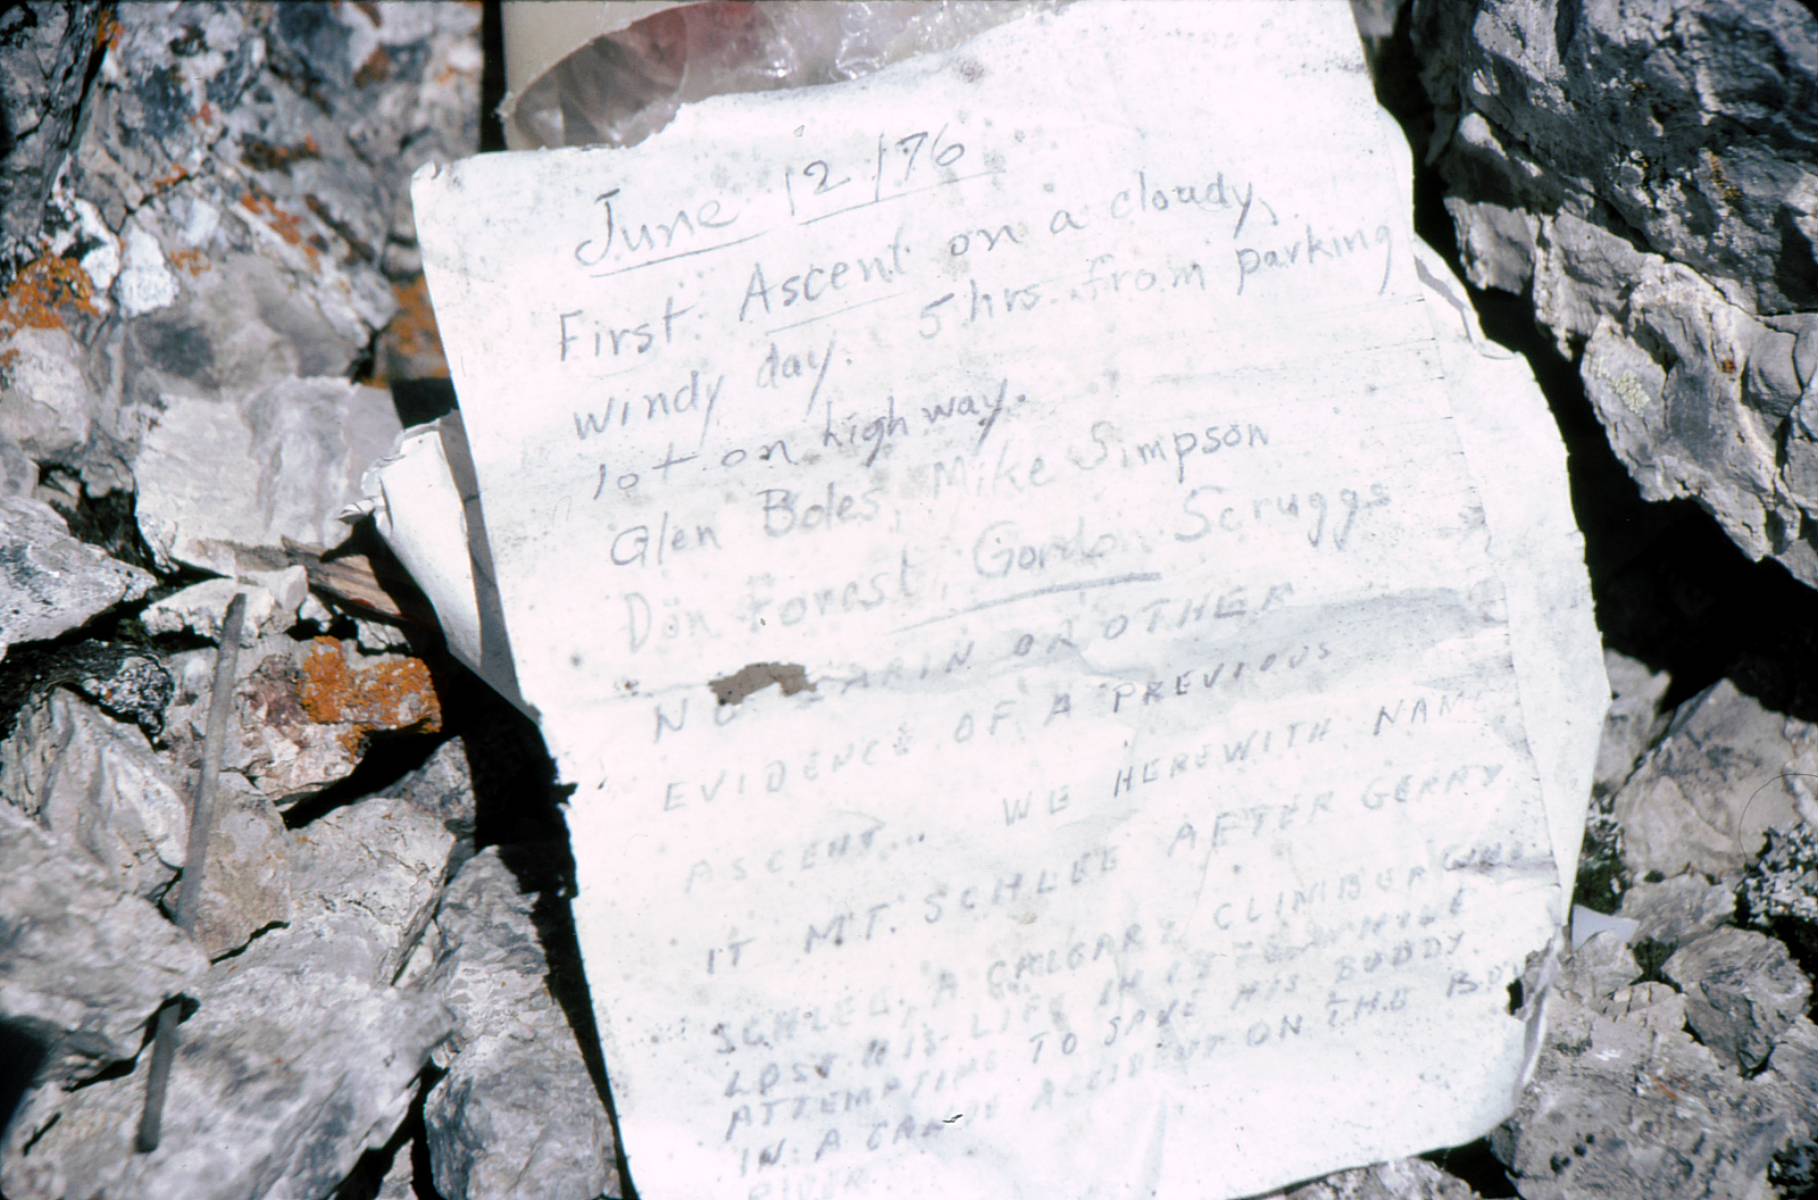 June 12/76
First Ascent on a cloudy,
windy day. 5 hrs. from parking
lot on highway.
Glen Boles, Mike Simpson
Don Forest, Gordo Scruggs
NO CAIRN OR OTHER
EVIDENCE OF A PREVIOUS
ASCENT... WE HEREWITH NAME
IT MT. SCHLEE AFTER GERRY
SCHLEE, A CALGARY CLIMBER WHO
LOST HIS LIFE IN WHILE
ATTEMPTING TO SAVE HIS BUDDY
IN A CANOE ACCIDENT ON THE BOW
RIVER